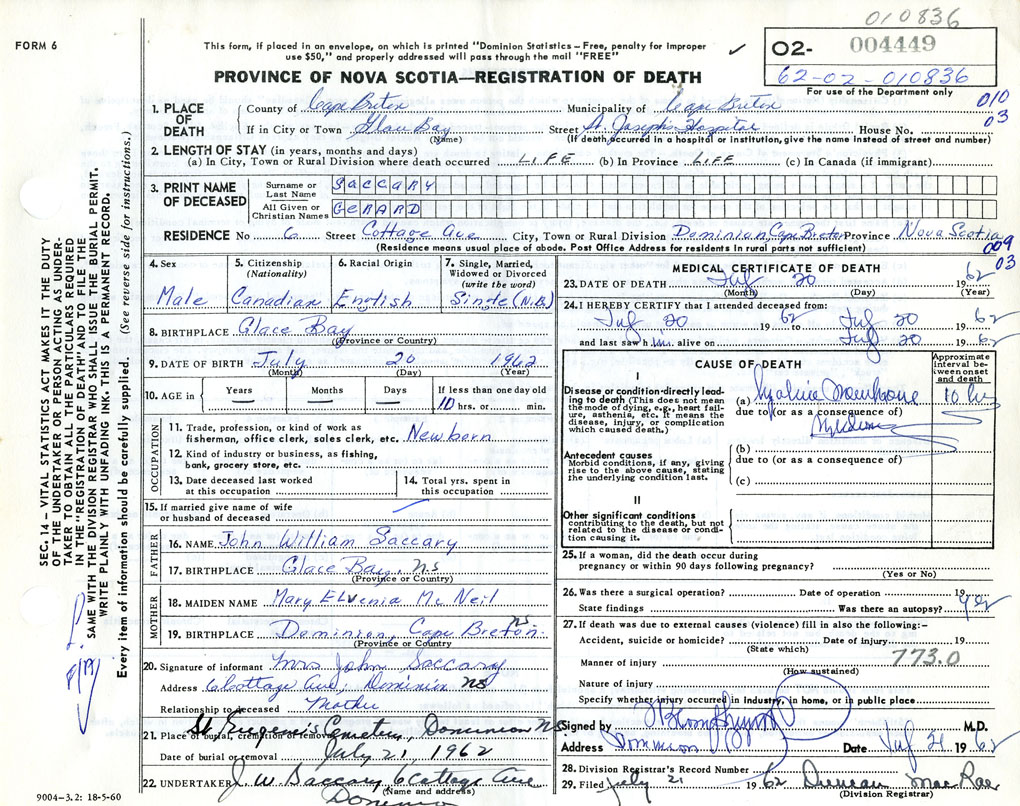 010836
FORM 6
This form, if placed in an envelope, on which is printed "Dominion Statistics – Free, penalty for improper
use $50," and properly addressed will pass through the mail "FREE"
✓
02- 004449
62-02-010836
For use of the Department only
PROVINCE OF NOVA SCOTIA—REGISTRATION OF DEATH
010
03
1. PLACE OF DEATH
County of Cape Breton Municipality of Cape Breton
If in City or Town Glace Bay Street St. Joseph's Hospital House No.
(Name) (If death occurred in a hospital or institution, give the name instead of street and number)
2. LENGTH OF STAY (in years, months and days)
(a) In City, Town or Rural Division where death occurred LIFE (b) In Province LIFE (c) In Canada (if immigrant)
3. PRINT NAME OF DECEASED
Surname or Last Name SACCARY
All Given or Christian Names GERARD
RESIDENCE No 6 Street Cottage Ave City, Town or Rural Division Dominion, Cape Breton Province Nova Scotia
(Residence means usual place of abode. Post Office Address for residents in rural parts not sufficient)
009
03
4. Sex
Male
5. Citizenship (Nationality)
Canadian
6. Racial Origin
English
7. Single, Married, Widowed or Divorced (write the word)
Single (N.B.)
8. BIRTHPLACE Glace Bay
(Province or Country)
9. DATE OF BIRTH July 20 1962
(Month) (Day) (Year)
10. AGE in Years Months Days If less than one day old
10 hrs. or min.
OCCUPATION
11. Trade, profession, or kind of work as
fisherman, office clerk, sales clerk, etc. Newborn
12. Kind of industry or business, as fishing,
bank, grocery store, etc.
13. Date deceased last worked
at this occupation
14. Total yrs. spent in
this occupation
15. If married give name of wife
or husband of deceased
FATHER
16. NAME John William Saccary
17. BIRTHPLACE Glace Bay, NS
(Province or Country)
MOTHER
18. MAIDEN NAME Mary Elvenia McNeil
19. BIRTHPLACE Dominion, Cape Breton NS
(Province or Country)
20. Signature of informant Mrs John Saccary
Address 6 Cottage Ave, Dominion NS
Relationship to deceased Mother
21. Place of burial, cremation or removal St Eugene's Cemetery, Dominion NS
Date of burial or removal July 21, 1962
22. UNDERTAKER J. W. Saccary, 6 Cottage Ave
(Name and address)
Dominion
MEDICAL CERTIFICATE OF DEATH
23. DATE OF DEATH July 20 62
(Month) (Day) (Year)
24. I HEREBY CERTIFY that I attended deceased from:
July 20 1962 to July 20 1962
and last saw him alive on July 20 1962
CAUSE OF DEATH
Approximate interval between onset and death
I
Disease or condition directly leading to death (This does not mean the mode of dying, e.g., heart failure, asthenia, etc. It means the disease, injury, or complication which caused death.)
(a) Hyaline Membrane 10 hrs
due to (or as a consequence of)
Syndrome
Antecedent causes
Morbid conditions, if any, giving rise to the above cause, stating the underlying condition last.
(b)
due to (or as a consequence of)
(c)
II
Other significant conditions
contributing to the death, but not related to the disease or condition causing it.
25. If a woman, did the death occur during
pregnancy or within 90 days following pregnancy?
(Yes or No)
26. Was there a surgical operation? Date of operation 19
State findings Was there an autopsy? yes
27. If death was due to external causes (violence) fill in also the following:-
Accident, suicide or homicide? Date of injury 19
(State which)
Manner of injury 773.0
(How sustained)
Nature of injury
Specify whether injury occurred in industry, in home, or in public place
Signed by M.D.
Address Dominion Date July 21 1962
28. Division Registrar's Record Number
29. Filed July 21 1962 Duncan MacRae
(Division Registrar)
SEC. 14 – VITAL STATISTICS ACT MAKES IT THE DUTY
OF THE UNDERTAKER OR PERSON ACTING AS UNDER-
TAKER TO OBTAIN ALL THE PARTICULARS REQUIRED
IN THE "REGISTRATION OF DEATH" AND TO FILE THE
SAME WITH THE DIVISION REGISTRAR WHO SHALL ISSUE THE BURIAL PERMIT.
WRITE PLAINLY WITH UNFADING INK. THIS IS A PERMANENT RECORD.
Every item of information should be carefully supplied. (See reverse side for instructions.)
9004-3.2: 18-5-60